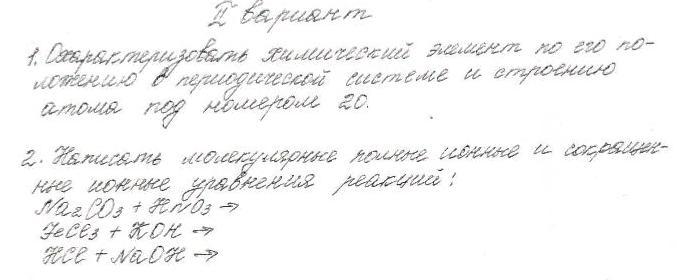 II вариант
1. Охарактеризовать химический элемент по его по-
ложению в периодической системе и строению
атома под номером 20.
2. Написать молекулярные полные ионные и сокращен-
ные ионные уравнения реакций:
Na₂CO₃ + HNO₃ →
FeCl₃ + KOH →
HCl + NaOH →